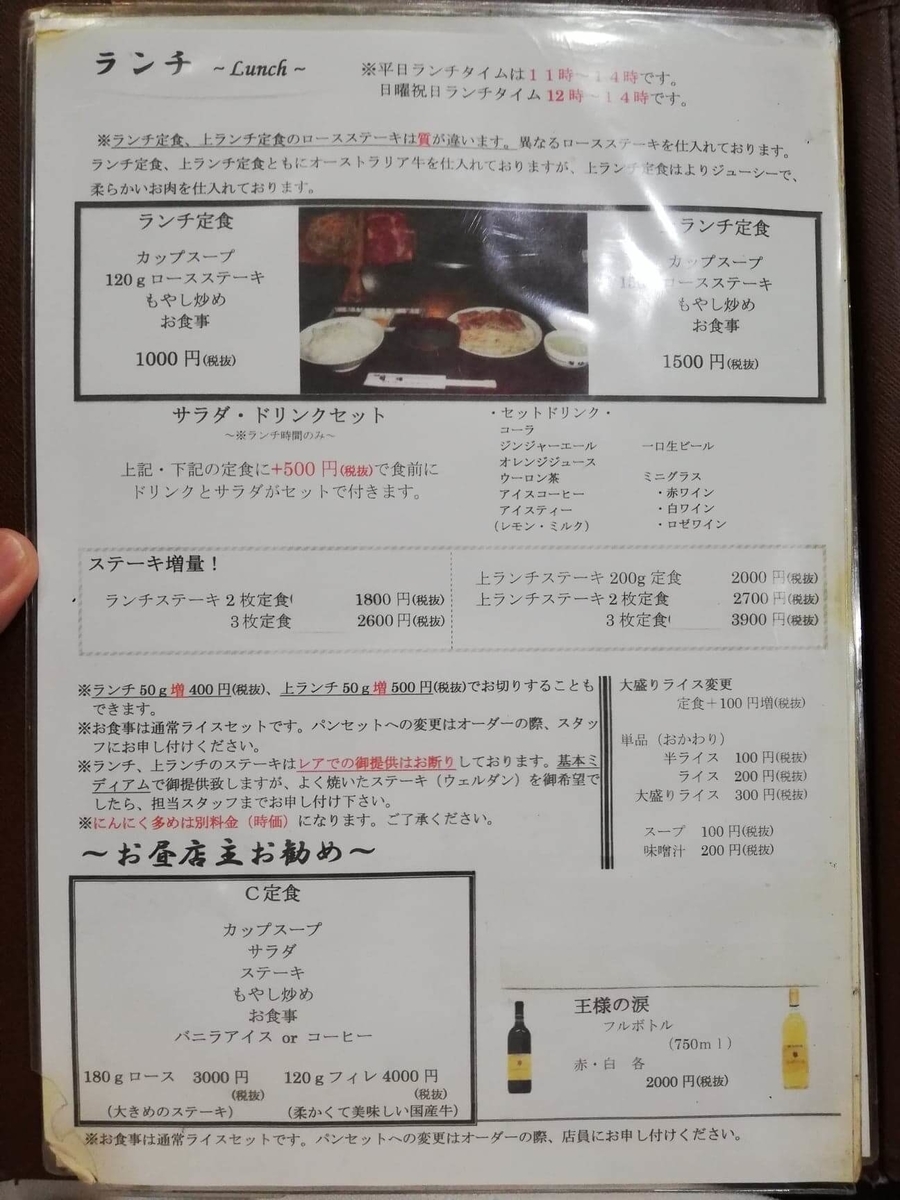 ランチ ～Lunch～
※平日ランチタイムは11時～14時です。
日曜祝日ランチタイム12時～14時です。
※ランチ定食、上ランチ定食のロースステーキは質が違います。異なるロースステーキを仕入れております。
ランチ定食、上ランチ定食ともにオーストラリア牛を仕入れておりますが、上ランチ定食はよりジューシーで、
柔らかいお肉を仕入れております。
ランチ定食
カップスープ
120gロースステーキ
もやし炒め
お食事
1000円(税抜)
ランチ定食
カップスープ
ロースステーキ
もやし炒め
お食事
1500円(税抜)
サラダ・ドリンクセット
～※ランチ時間のみ～
上記・下記の定食に+500円(税抜)で食前に
ドリンクとサラダがセットで付きます。
・セットドリンク・
コーラ
ジンジャーエール
オレンジジュース
ウーロン茶
アイスコーヒー
アイスティー
(レモン・ミルク)
一口生ビール
ミニグラス
・赤ワイン
・白ワイン
・ロゼワイン
ステーキ増量！
ランチステーキ2枚定食 1800円(税抜)
3枚定食 2600円(税抜)
上ランチステーキ200g定食 2000円(税抜)
上ランチステーキ2枚定食 2700円(税抜)
3枚定食 3900円(税抜)
※ランチ50g増400円(税抜)、上ランチ50g増500円(税抜)でお切りすることも
できます。
※お食事は通常ライスセットです。パンセットへの変更はオーダーの際、スタッ
フにお申し付けください。
※ランチ、上ランチのステーキはレアでの御提供はお断りしております。基本ミ
ディアムで御提供致しますが、よく焼いたステーキ（ウェルダン）を御希望で
したら、担当スタッフまでお申し付け下さい。
※にんにく多めは別料金（時価）になります。ご了承ください。
大盛りライス変更
定食＋100円増(税抜)
単品（おかわり）
半ライス 100円(税抜)
ライス 200円(税抜)
大盛りライス 300円(税抜)
スープ 100円(税抜)
味噌汁 200円(税抜)
～お昼店主お勧め～
C定食
カップスープ
サラダ
ステーキ
もやし炒め
お食事
バニラアイス or コーヒー
180gロース 3000円(税抜)
(大きめのステーキ)
120gフィレ4000円(税抜)
(柔かくて美味しい国産牛)
王様の涙
フルボトル
(750ml)
赤・白 各
2000円(税抜)
※お食事は通常ライスセットです。パンセットへの変更はオーダーの際、店員にお申し付けください。